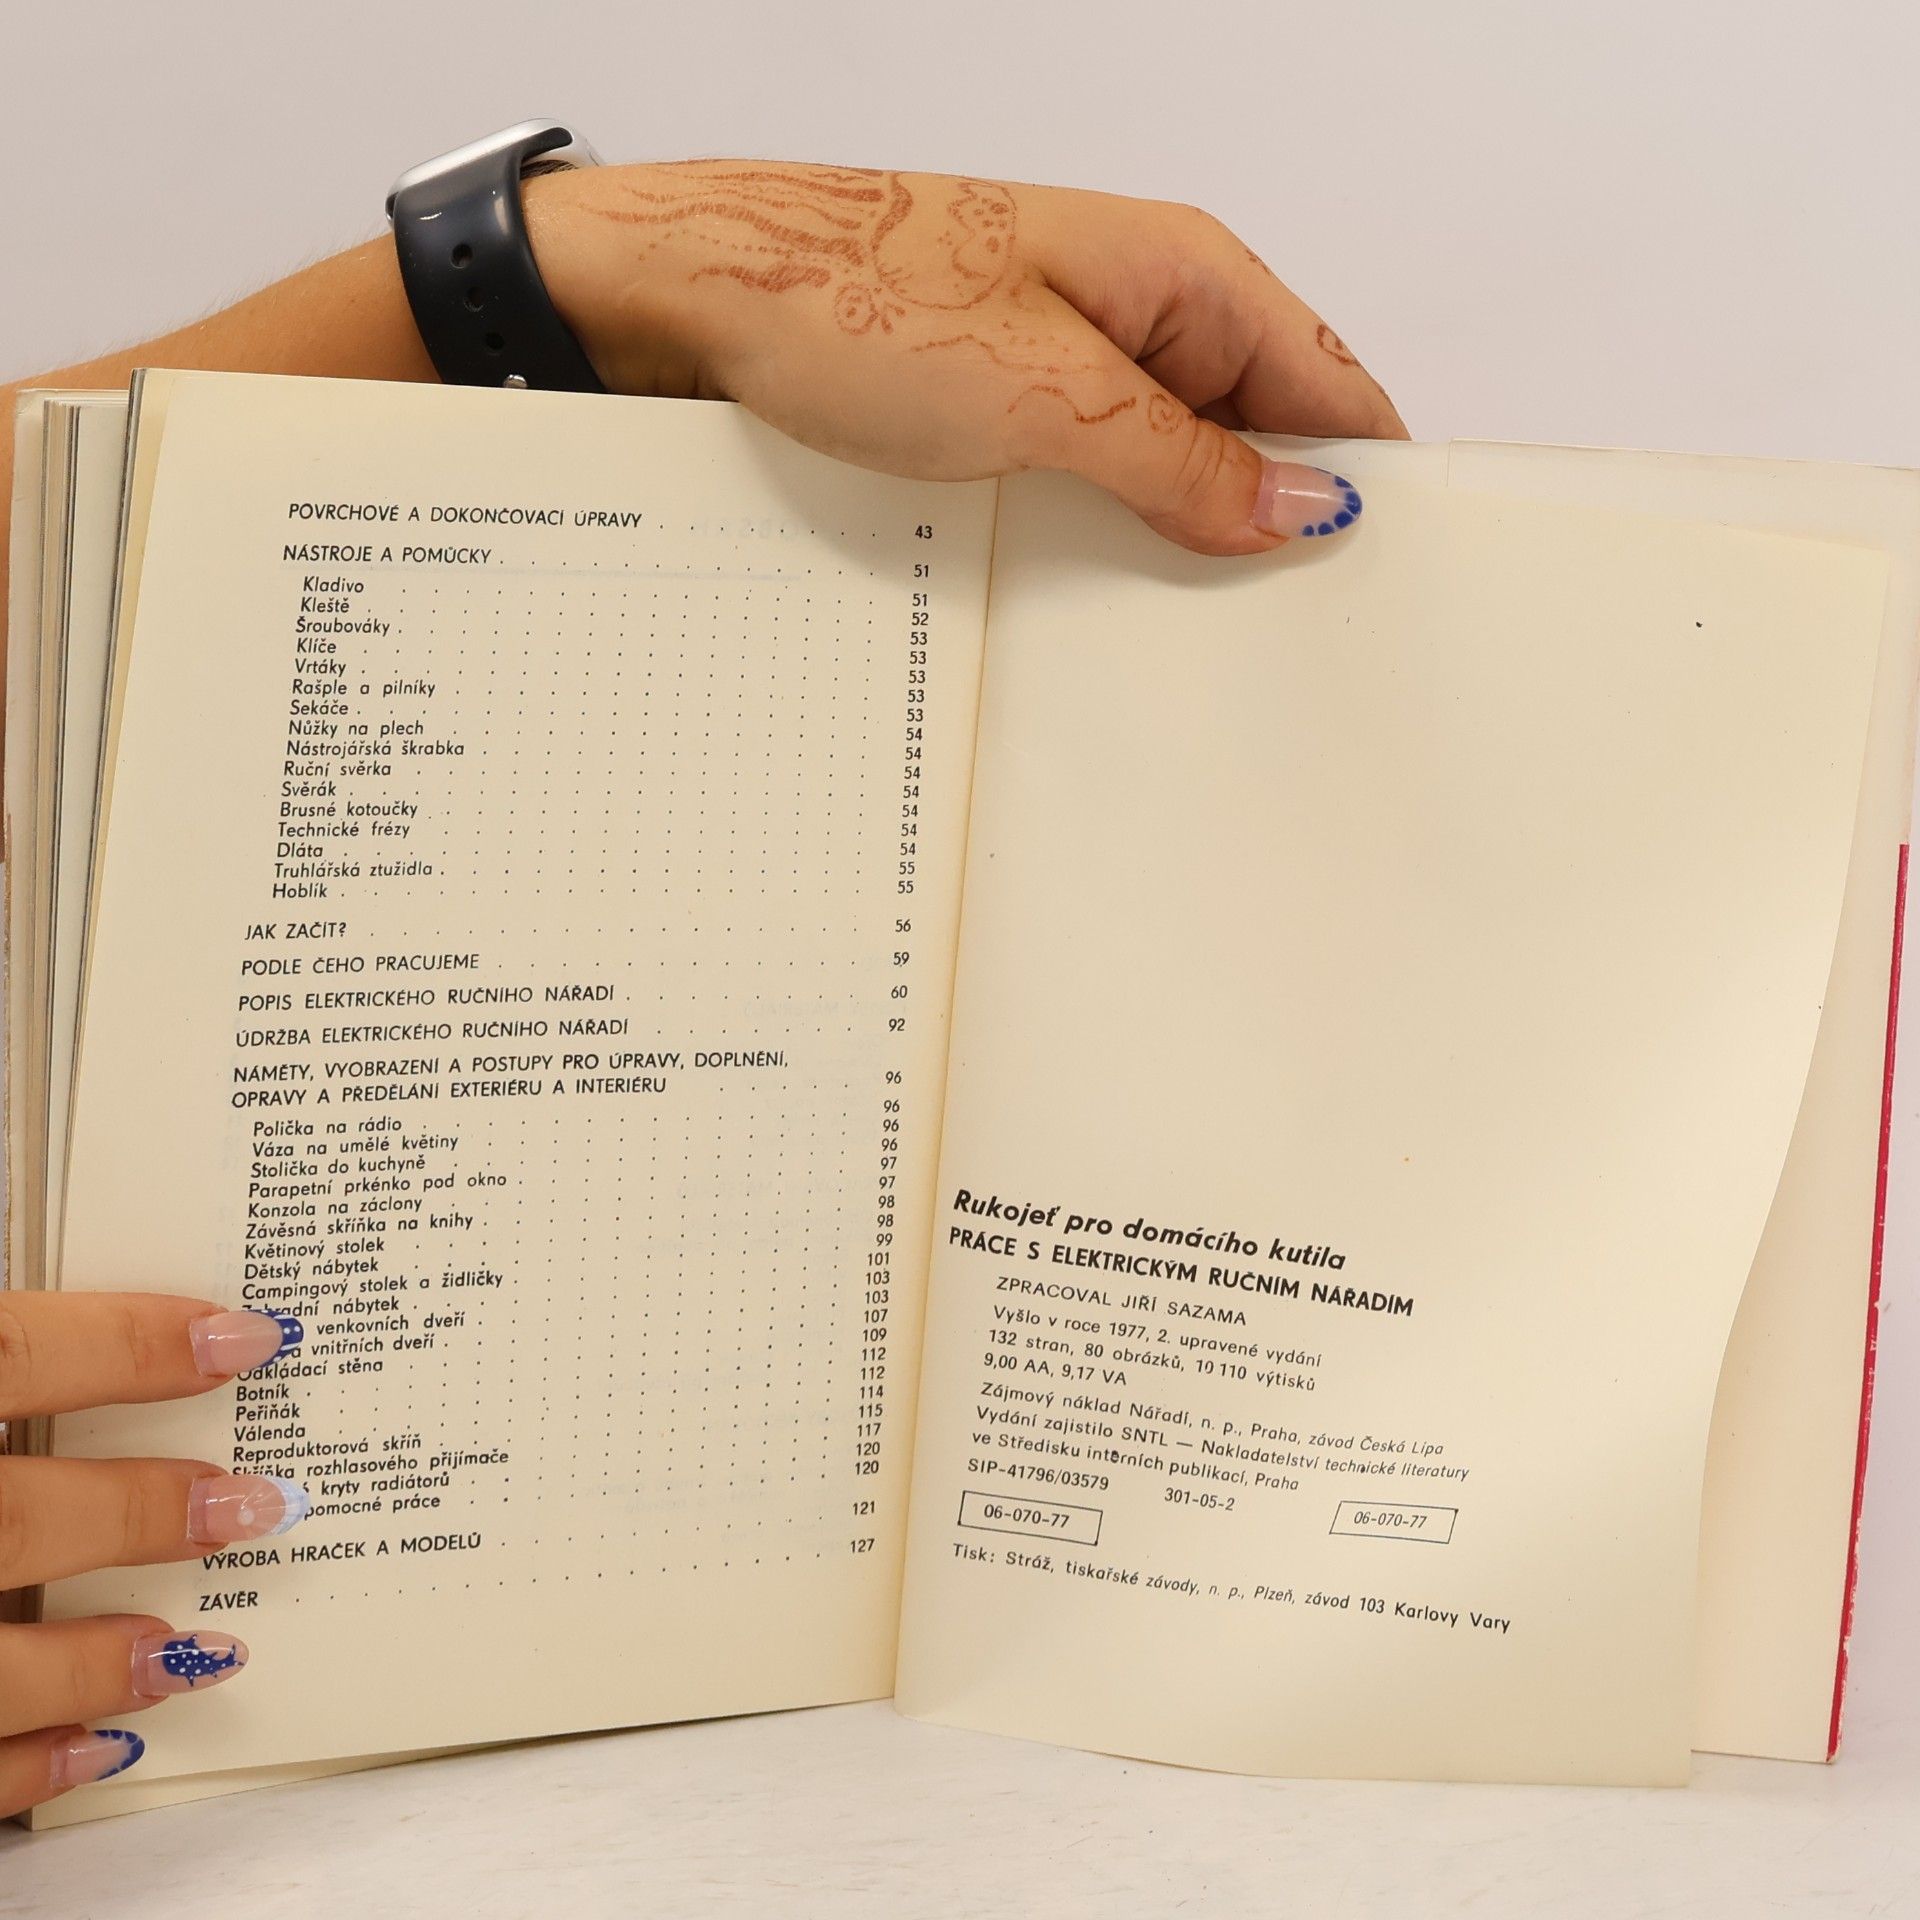 POVRCHOVÉ A DOKONČOVACÍ ÚPRAVY . . . . . . 43
NÁSTROJE A POMŮCKY . . . . . . . . . . 51
Kladivo . . . . . . . . . . . . 51
Kleště . . . . . . . . . . . . 52
Šroubováky . . . . . . . . . . . . 53
Klíče . . . . . . . . . . . . 53
Vrtáky . . . . . . . . . . . . 53
Rašple a pilníky . . . . . . . . . . 53
Sekáče . . . . . . . . . . . . 53
Nůžky na plech . . . . . . . . . . 54
Nástrojářská škrabka . . . . . . . . . . 54
Ruční svěrka . . . . . . . . . . 54
Svěrák . . . . . . . . . . . . 54
Brusné kotoučky . . . . . . . . . . 54
Technické frézy . . . . . . . . . . 54
Dláta . . . . . . . . . . . . 54
Truhlářská ztužidla . . . . . . . . . . 55
Hoblík . . . . . . . . . . . . 55
JAK ZAČÍT? . . . . . . . . . . . . 56
PODLE ČEHO PRACUJEME . . . . . . . . . . 59
POPIS ELEKTRICKÉHO RUČNÍHO NÁŘADÍ . . . . . . 60
ÚDRŽBA ELEKTRICKÉHO RUČNÍHO NÁŘADÍ . . . . . . 92
NÁMĚTY, VYOBRAZENÍ A POSTUPY PRO ÚPRAVY, DOPLNĚNÍ,
OPRAVY A PŘEDĚLÁNÍ EXTERIÉRU A INTERIÉRU . . . . 96
Polička na rádio . . . . . . . . . . 96
Váza na umělé květiny . . . . . . . . . . 96
Stolička do kuchyně . . . . . . . . . . 96
Parapetní prkénko pod okno . . . . . . . . . 97
Konzola na záclony . . . . . . . . . . 97
Závěsná skříňka na knihy . . . . . . . . . 98
Květinový stolek . . . . . . . . . . 98
Dětský nábytek . . . . . . . . . . 99
Campingový stolek a židličky . . . . . . . . 101
Zahradní nábytek . . . . . . . . . . 103
venkovních dveří . . . . . . . . . . 103
vnitřních dveří . . . . . . . . . . 107
Odkládací stěna . . . . . . . . . . 109
Botník . . . . . . . . . . . . 112
Peřiňák . . . . . . . . . . . . 112
Válenda . . . . . . . . . . . . 114
Reproduktorová skříň . . . . . . . . . . 115
Skříňka rozhlasového přijímače . . . . . . . . 117
kryty radiátorů . . . . . . . . . . 120
pomocné práce . . . . . . . . . . 120
VÝROBA HRAČEK A MODELŮ . . . . . . . . . 121
ZÁVĚR . . . . . . . . . . . . 127
Rukojeť pro domácího kutila
PRÁCE S ELEKTRICKÝM RUČNÍM NÁŘADÍM
ZPRACOVAL JIŘÍ SAZAMA
Vyšlo v roce 1977, 2. upravené vydání
132 stran, 80 obrázků, 10 110 výtisků
9,00 AA, 9,17 VA
Zájmový náklad Nářadí, n. p., Praha, závod Česká Lípa
Vydání zajistilo SNTL — Nakladatelství technické literatury
ve Středisku interních publikací, Praha
SIP-41796/03579 301-05-2
06-070-77 06-070-77
Tisk: Stráž, tiskařské závody, n. p., Plzeň, závod 103 Karlovy Vary